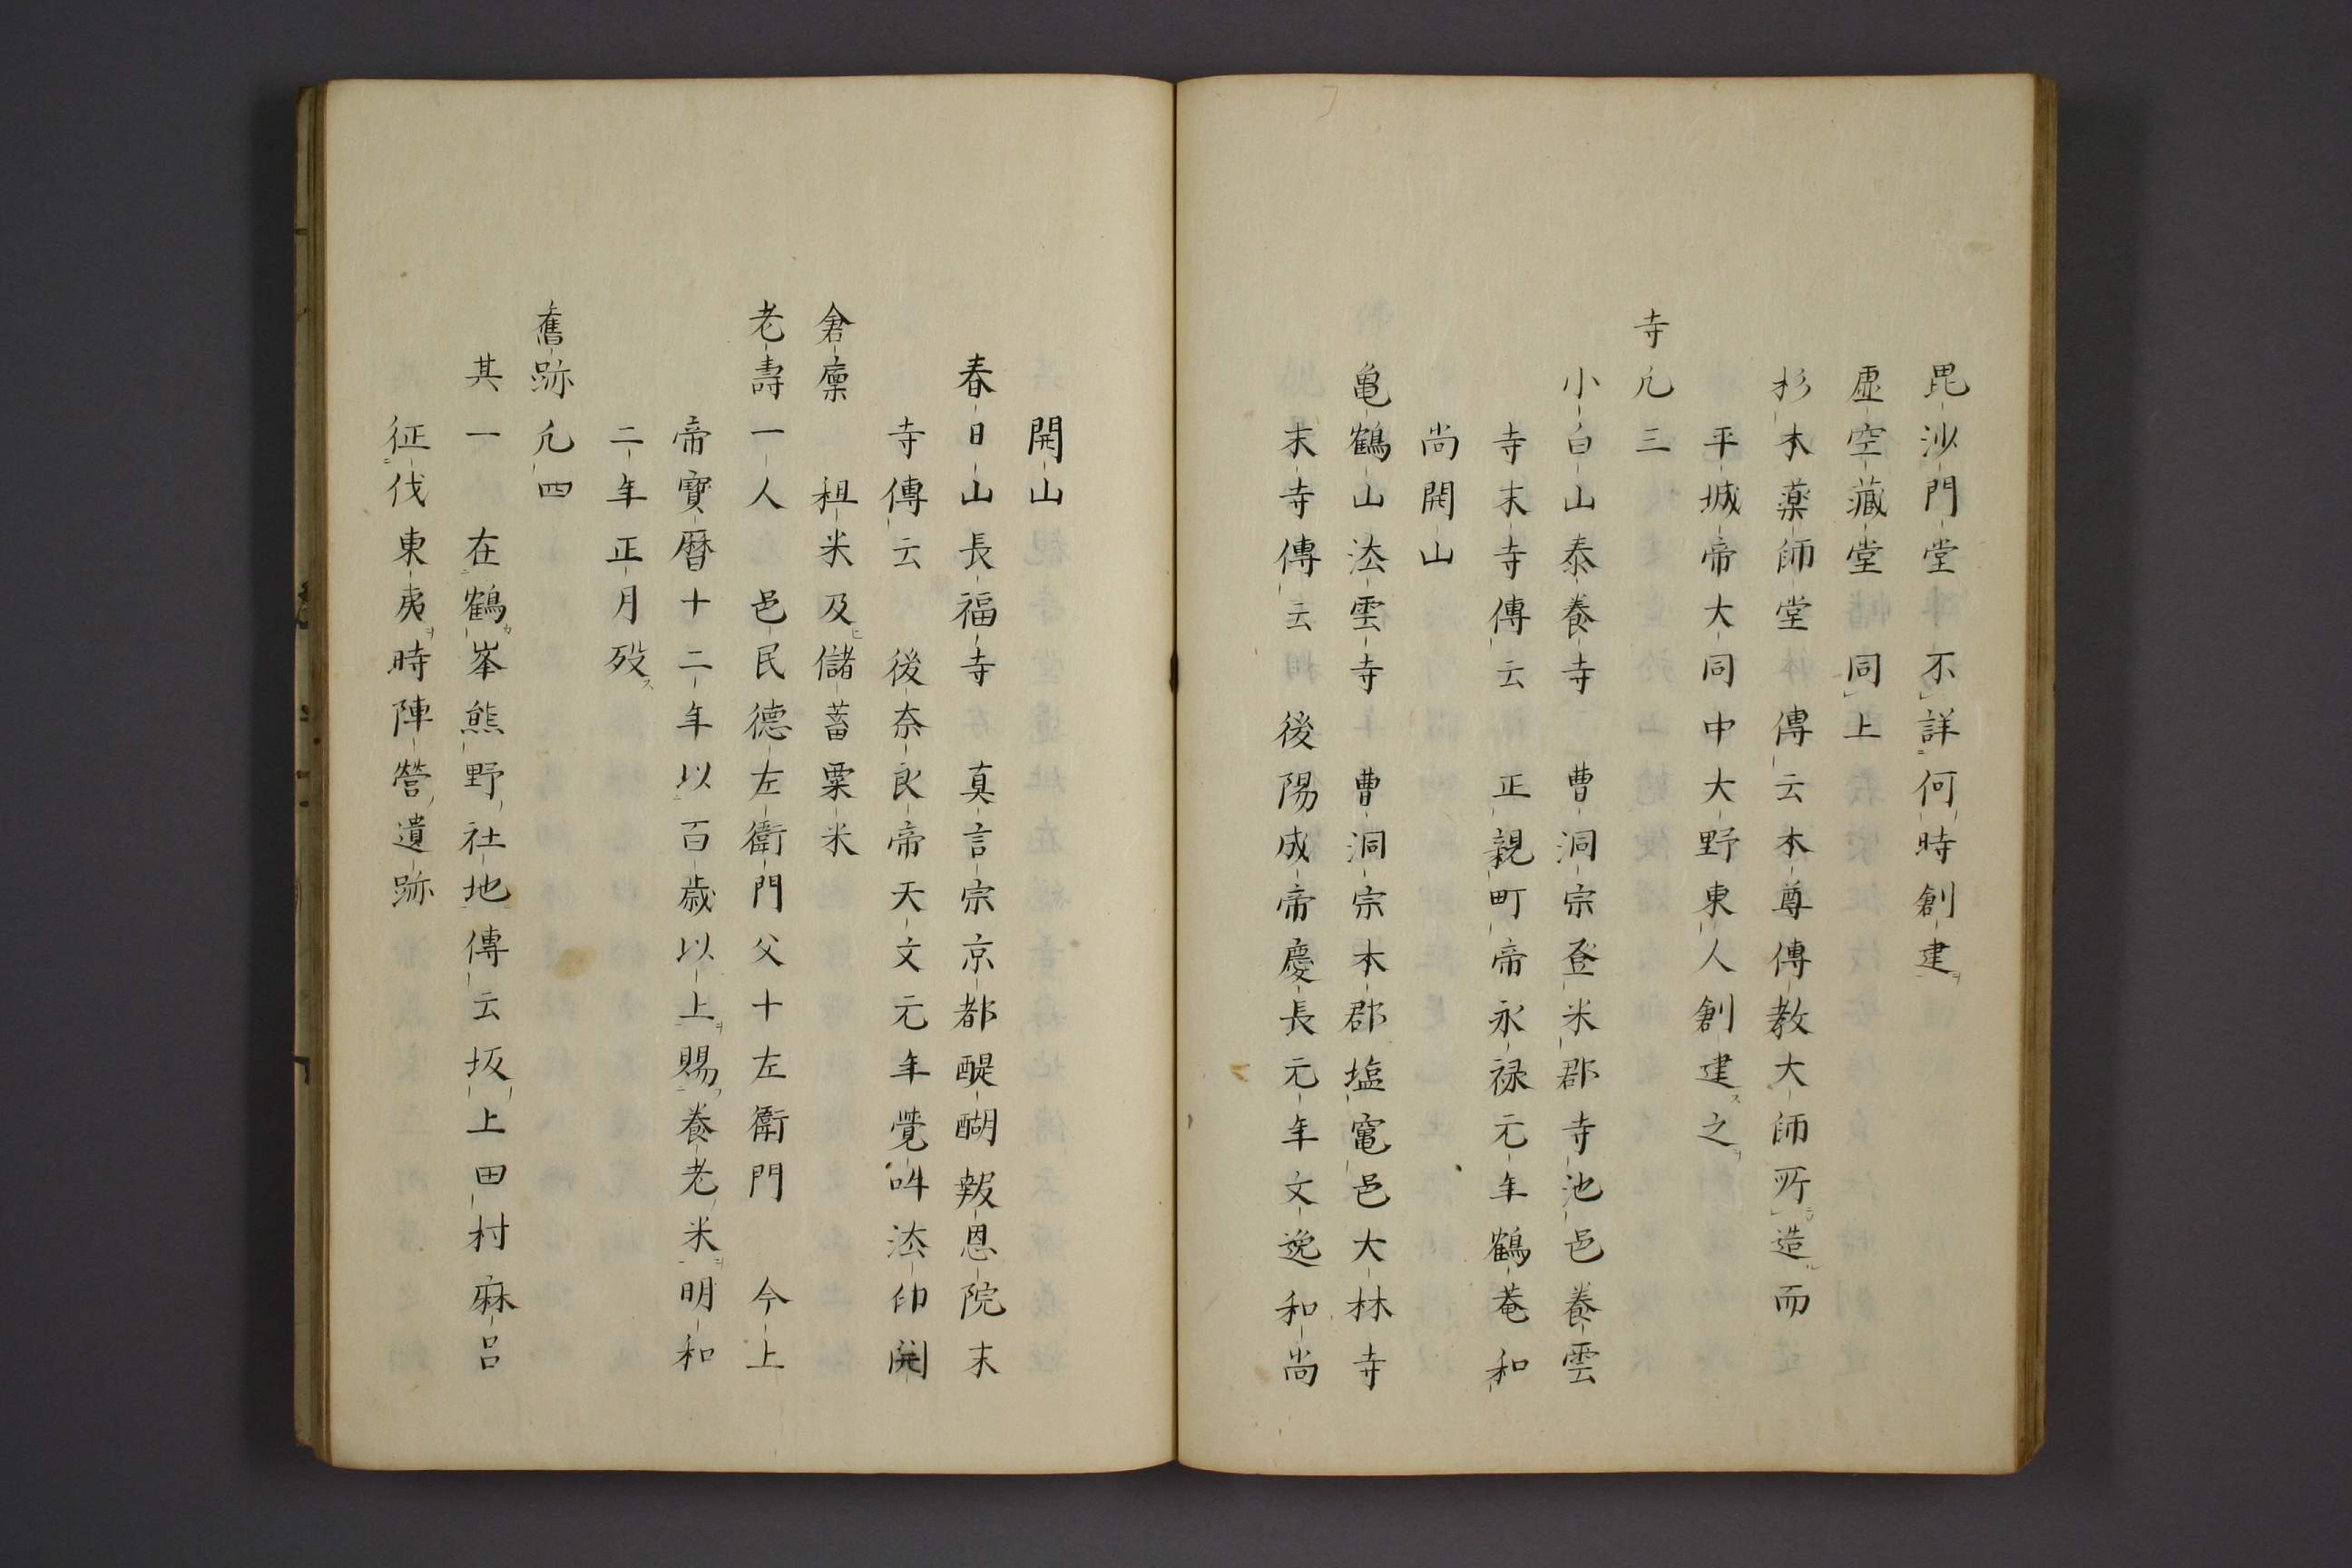 毘沙門堂　不詳何時創建
虚空藏堂　同上
杉本藥師堂　傳云本尊傳教大師所造而
平城帝大同中大野東人創建之
寺凢三
小白山泰養寺　曹洞宗登米郡寺池邑養雲
寺末寺傳云　正親町帝永禄元年鶴菴和
尚開山
亀鶴山法雲寺　曹洞宗本郡塩竃邑大林寺
末寺傳云　後陽成帝慶長元年文逸和尚
開山
春日山長福寺　真言宗京都醍醐報恩院末
寺傳云　後奈良帝天文元年覺叫法印開
倉廩　租米及儲蓄粟米
老壽一人　邑民德左衛門父十左衛門　今上
帝寶曆十二年以百歳以上賜養老米明和
二年正月歿
舊跡凢四
其一　在鶴峯熊野社地傳云坂上田村麻呂
征伐東夷時陣營遺跡